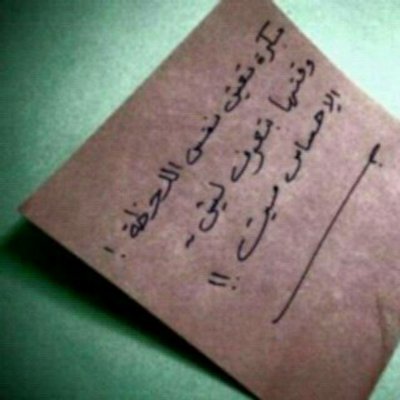 بكرة تعيش نفس اللحظة !
وقتها تعرف ليش ~
الإحساس ميت !!